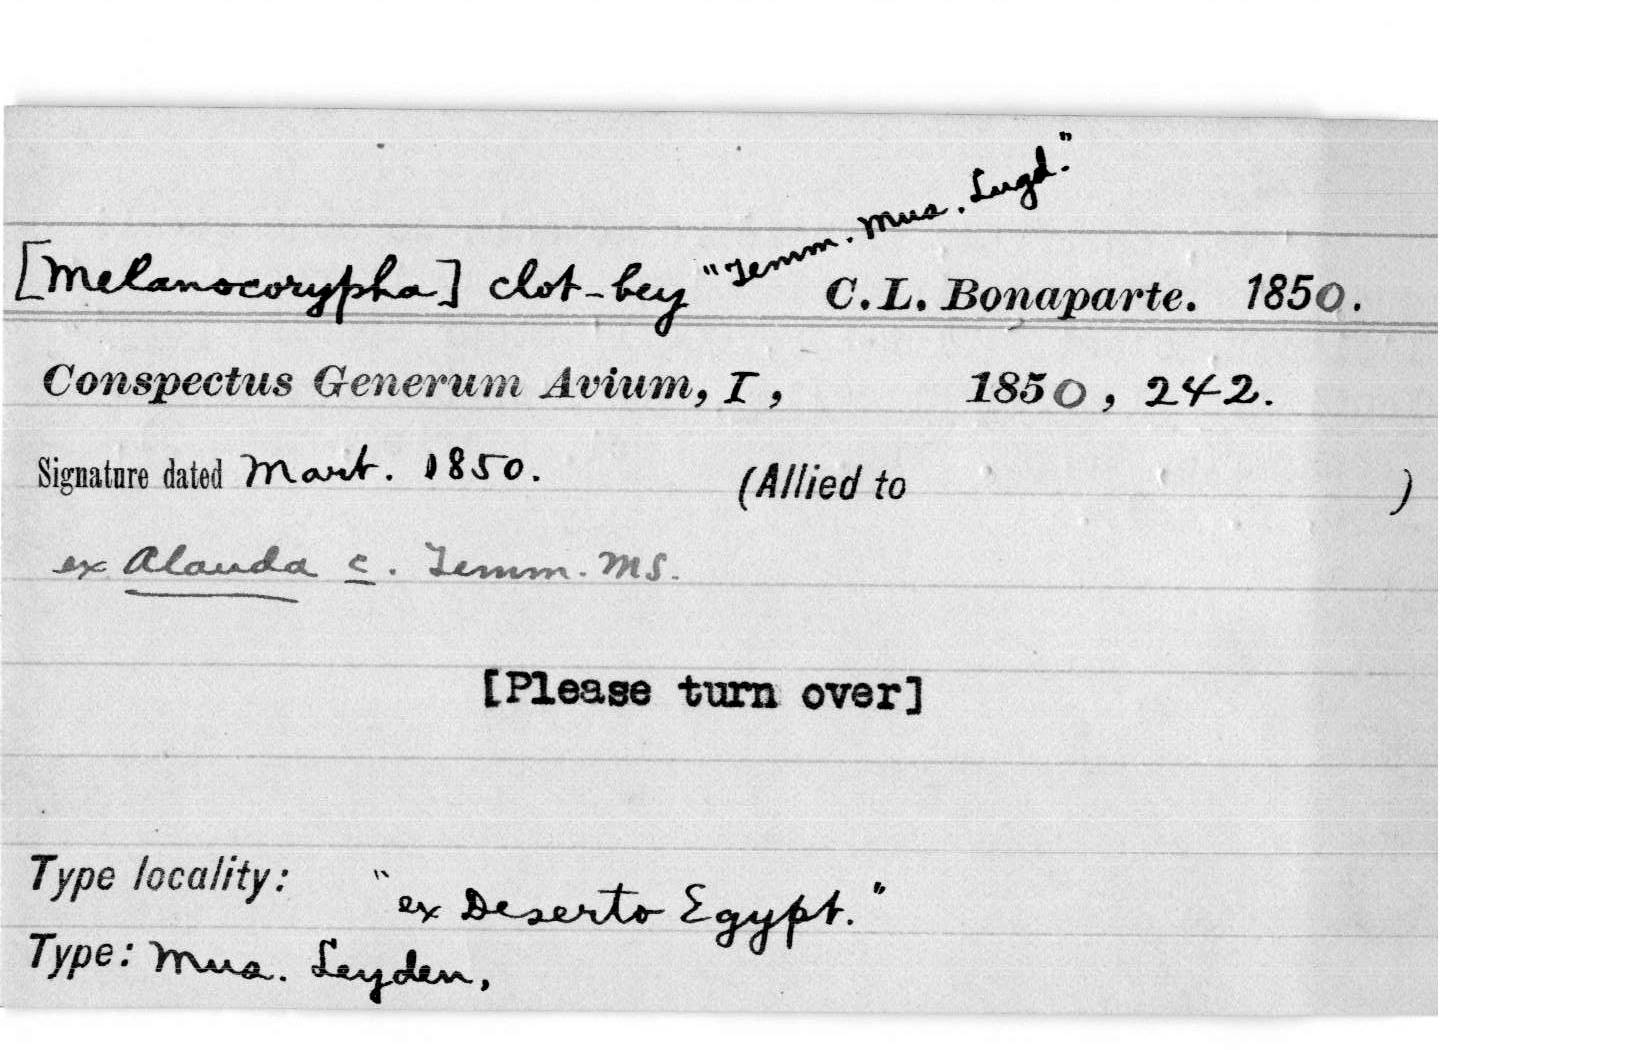 [Melanocorypha] clot-bey "Temm. Mus. Lugd." C. L. Bonaparte. 1850.
Conspectus Generum Avium, I, 1850, 242.
Signature dated Mart. 1850. (Allied to )
ex Alauda c. Temm. MS.
[Please turn over]
Type locality: "ex Deserto Egypt."
Type: Mus. Leyden,